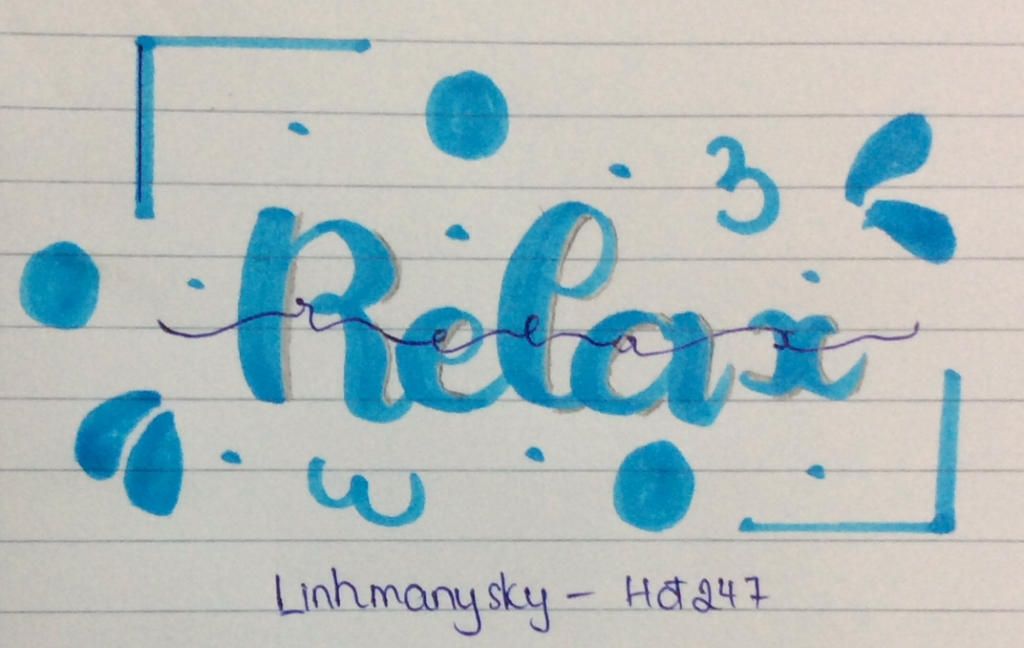 Relax
relax
Linhmanysky - Hot247